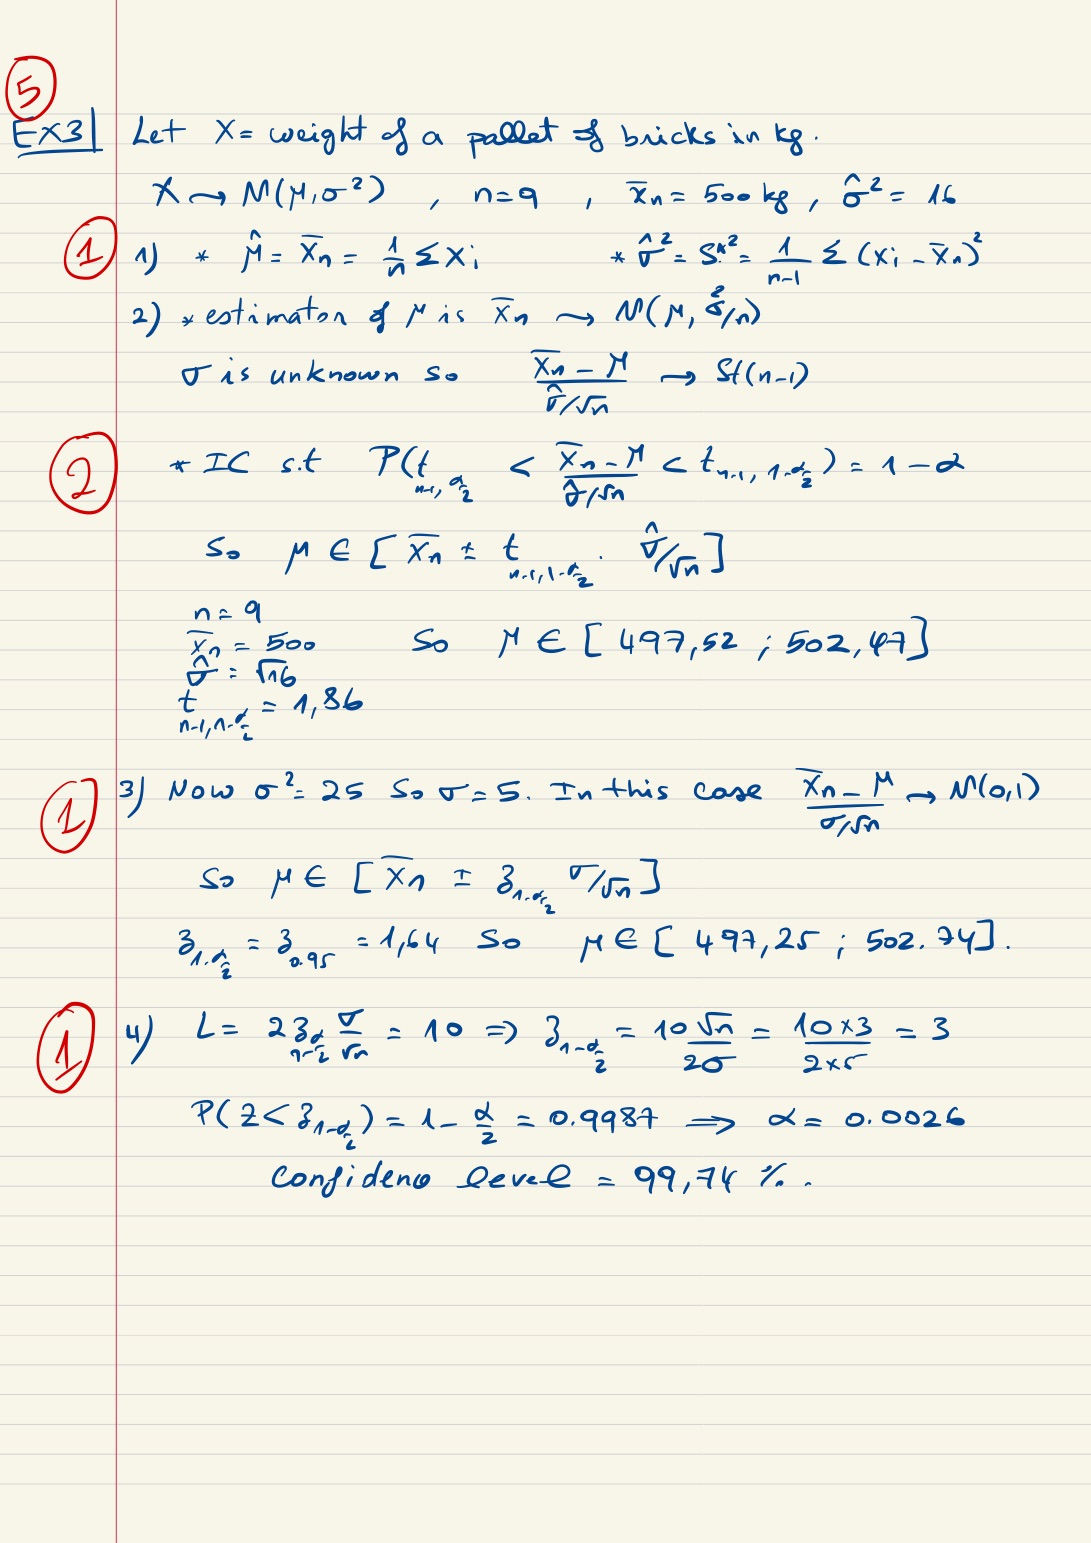 5
EX3| Let X = weight of a pallet of bricks in kg.
X → N(μ, σ²) , n=9 , x̄n = 500 kg , σ̂² = 16
1 1) * μ̂ = X̄n = 1/n Σ Xi * σ̂² = S*² = 1/(n-1) Σ (Xi - X̄n)²
2) * estimator of μ is X̄n → N(μ, σ²/n)
σ is unknown so (X̄n - μ)/(σ̂/√n) → St(n-1)
2 * IC s.t P(t n-1, α/2 < (X̄n - μ)/(σ̂/√n) < t n-1, 1-α/2) = 1 - α
So μ ∈ [X̄n ± t n-1, 1-α/2 . σ̂/√n]
n = 9
x̄n = 500 So μ ∈ [497,52 ; 502,47]
σ̂ = √16
t n-1, 1-α/2 = 1,86
1 3) Now σ² = 25 So σ = 5. In this case (X̄n - μ)/(σ/√n) → N(0,1)
So μ ∈ [X̄n ± z 1-α/2 σ/√n]
z 1-α/2 = z 0.95 = 1,64 So μ ∈ [497,25 ; 502.74].
1 4) L = 2 z 1-α/2 σ/√n = 10 ⇒ z 1-α/2 = 10√n/2σ = 10×3/2×5 = 3
P(Z < z 1-α/2) = 1 - α/2 = 0.9987 ⟹ α = 0.0026
Confidenc level = 99,74 %.